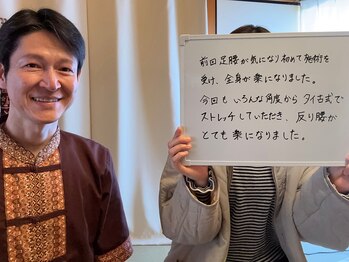 前回足腰が気になり初めて施術を
受け、全身が楽になりました。
今回も いろんな角度から タイ古式で
ストレッチしていただき、反り腰が
とても 楽になりました。